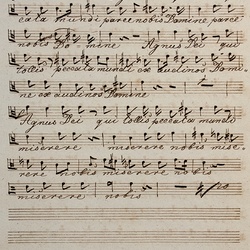 cata mundi parce nobis Domine, parce
nobis Domine Agnus Dei qui
tollis peccata mundi ex audi nos Domi
ne ex audi nos Domine
Agnus Dei qui tollis peccata mundi
miserere miserere nobis mise,
rere nobis miserere nobis
miserere nobis